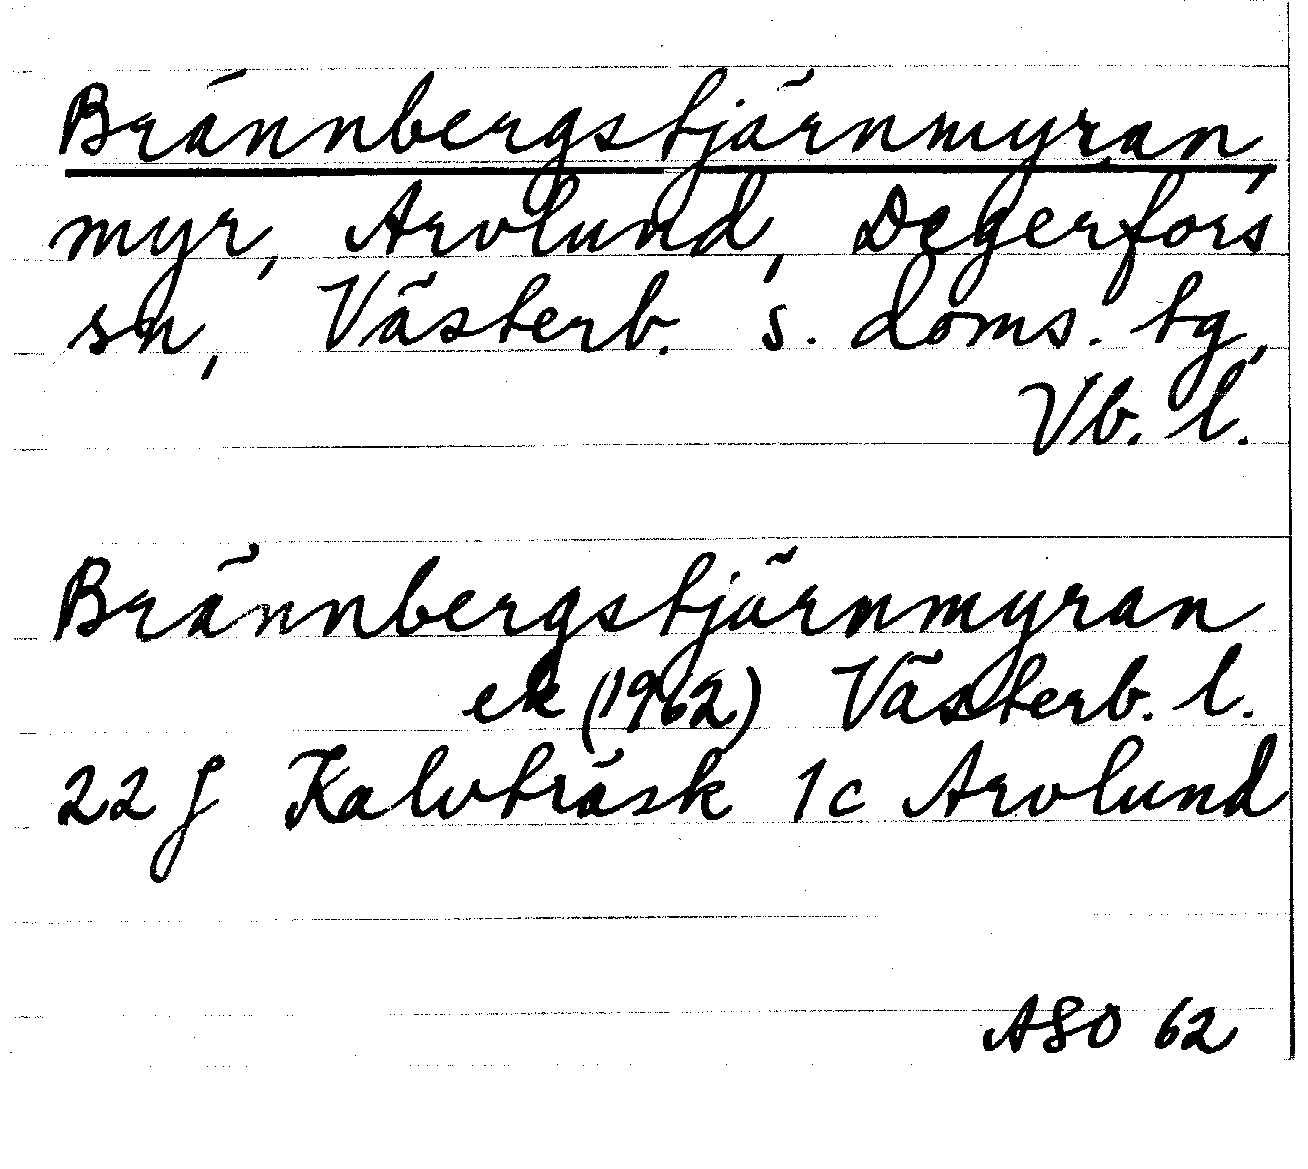 Brännbergstjärnmyran,
myr, Arvlund, Degerfors
sn, Västerb. s. doms. tg,
Vb. l.
Brännbergstjärnmyran
ek (1962) Västerb. l.
22 J Kalvträsk 1c Arvlund
ASO 62